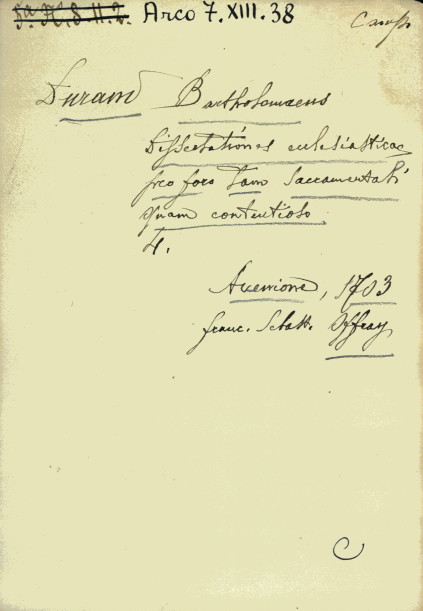 5ª. H. 8. II. 2. Arco 7. XIII. 38
Durand Bartholomaeus
Dissertationes ecclesiasticae
pro foro tam sacramentali
quam contentioso
4.
Avenione, 1703
Franc. Sebast. Offray
C